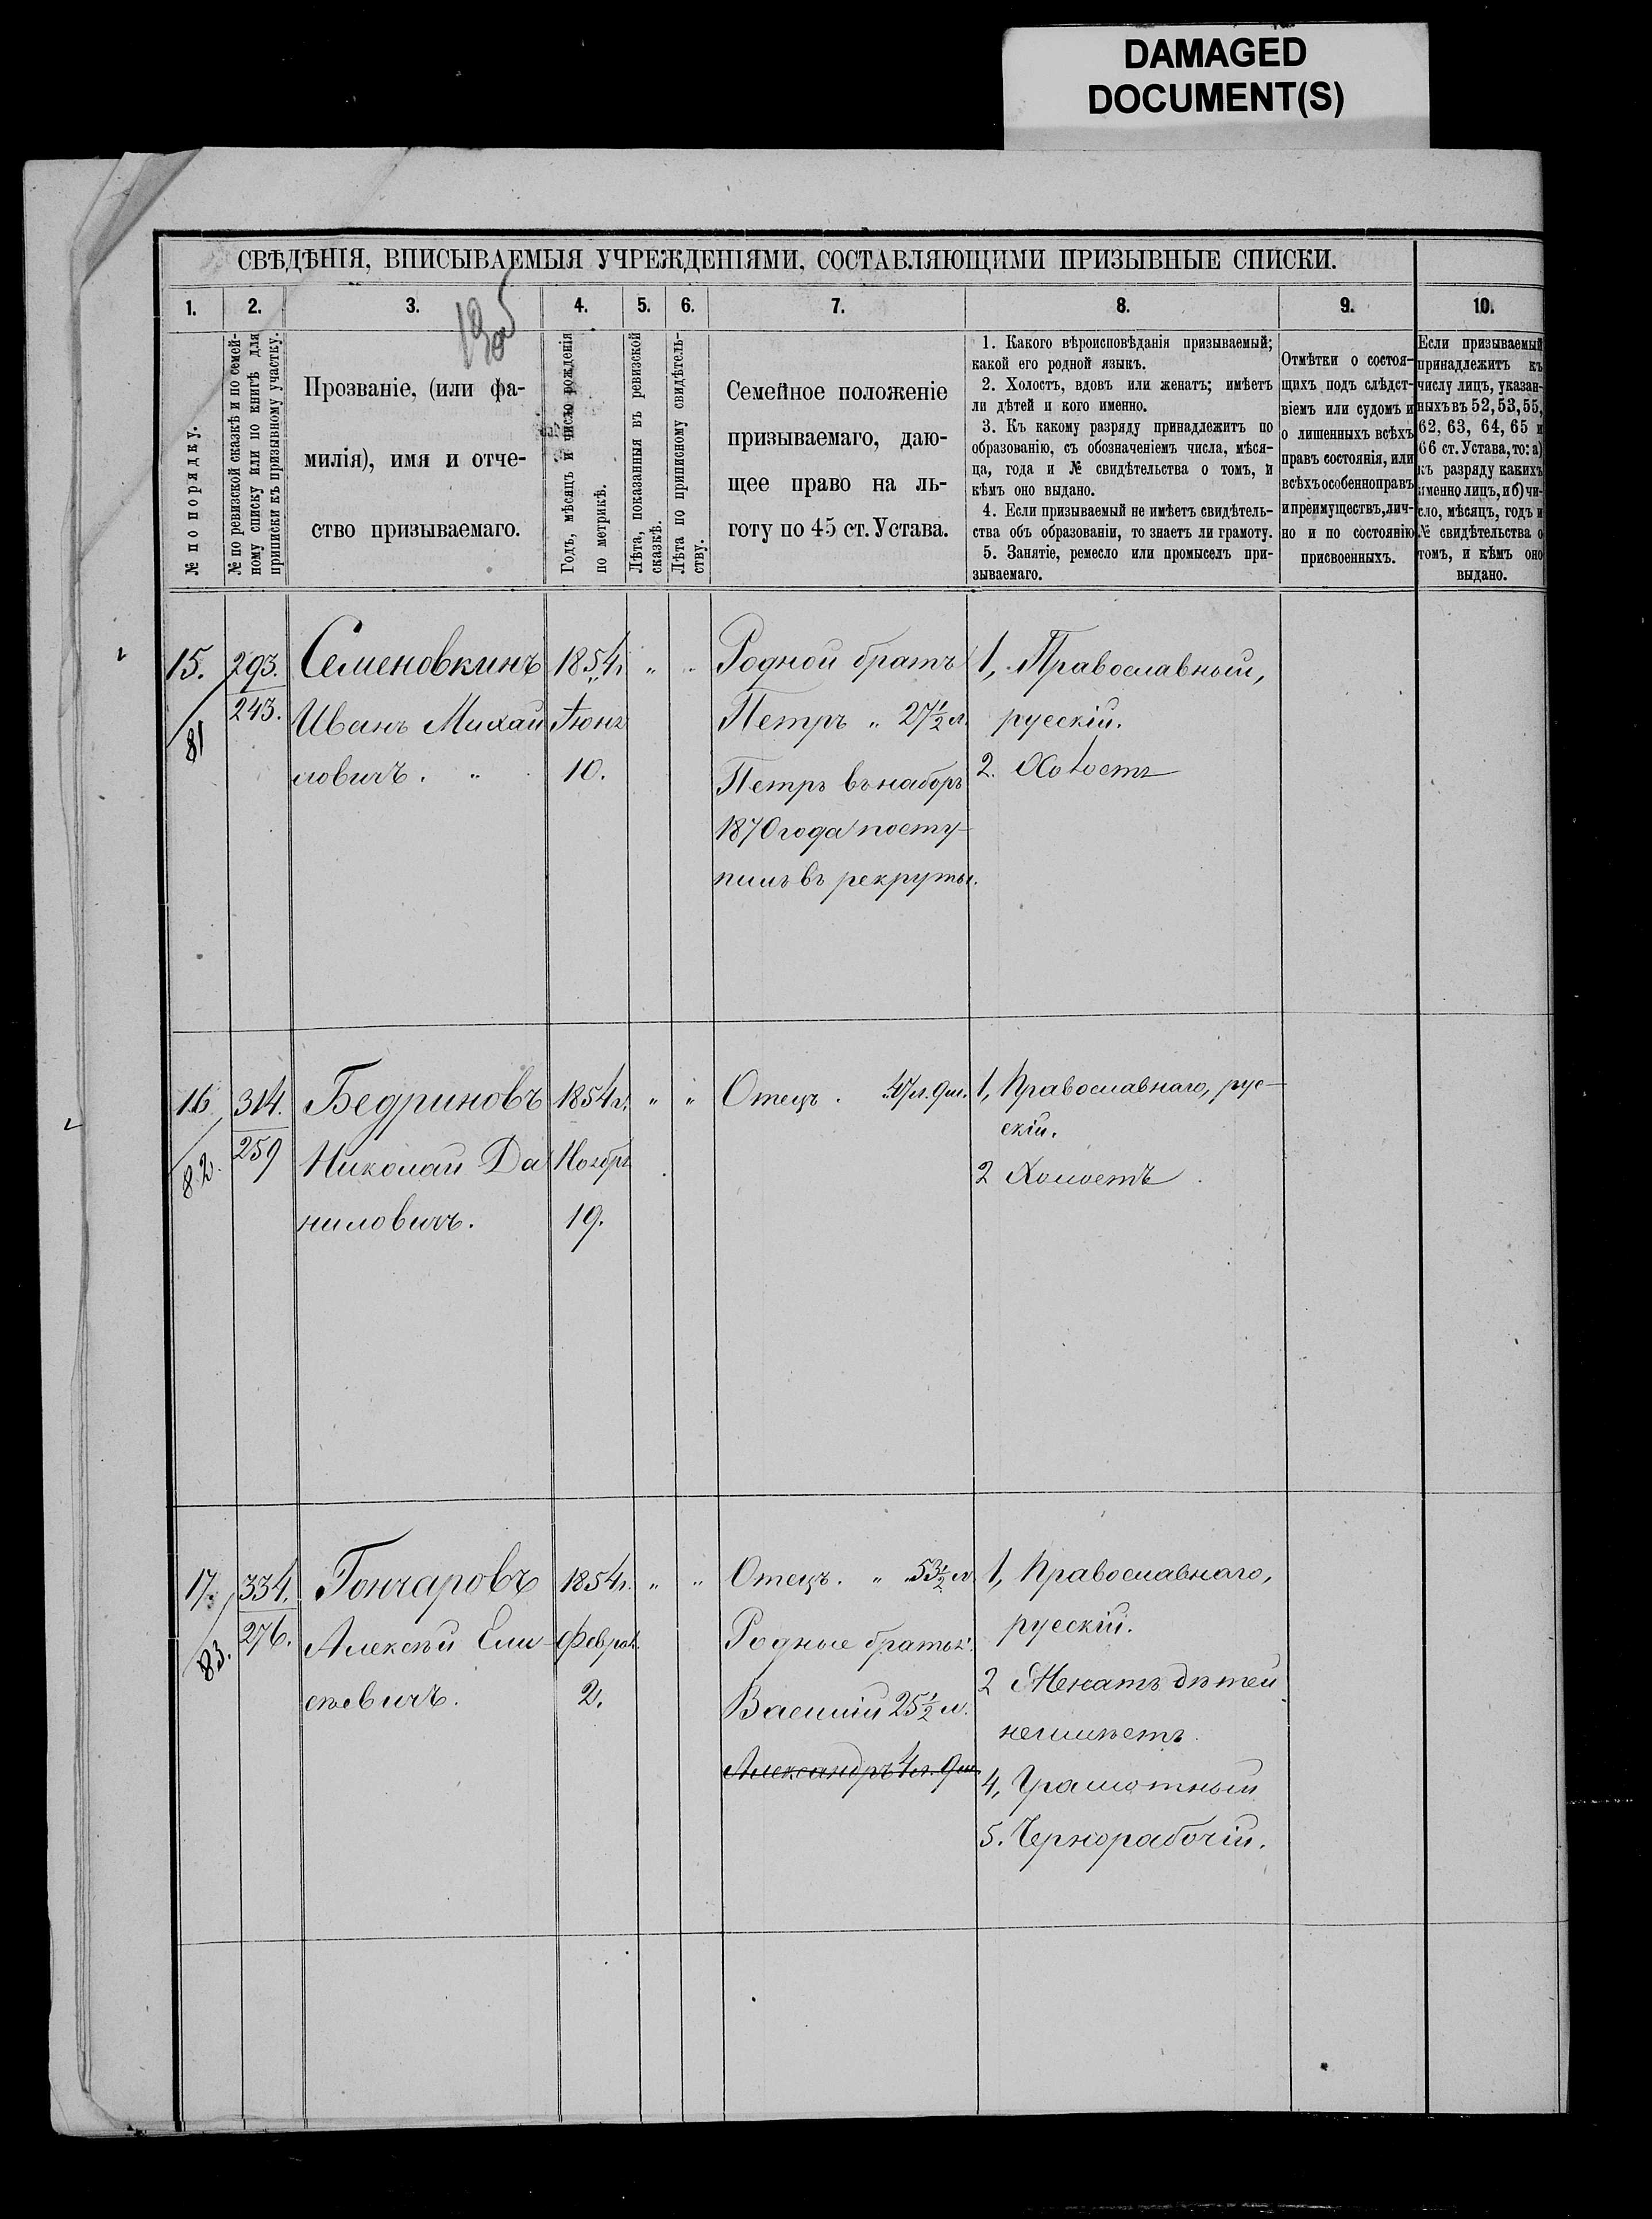 DAMAGED
DOCUMENT(S)
СВѢДѢНІЯ, ВПИСЫВАЕМЫЯ УЧРЕЖДЕНІЯМИ, СОСТАВЛЯЮЩИМИ ПРИЗЫВНЫЕ СПИСКИ.
1.
2.
3.
4.
5.
6.
7.
8.
9.
10.
№ по порядку.
№ по ревизской сказкѣ и по семей-
ному списку или по книгѣ для
приписки къ призывному участку.
Прозваніе, (или фа-
милія), имя и отче-
ство призываемаго.
Годъ, мѣсяцъ и число рожденія
по метрикѣ.
Лѣта, показанныя въ ревизской
сказкѣ.
Лѣта по приписному свидѣтель-
ству.
Семейное положеніе
призываемаго, даю-
щее право на ль-
готу по 45 ст. Устава.
1. Какого вѣроисповѣданія призываемый;
какой его родной языкъ.
2. Холостъ, вдовъ или женатъ; имѣетъ
ли дѣтей и кого именно.
3. Къ какому разряду принадлежитъ по
образованію, съ обозначеніемъ числа, мѣся-
ца, года и № свидѣтельства о томъ, и
кѣмъ оно выдано.
4. Если призываемый не имѣетъ свидѣтель-
ства объ образованіи, то знаетъ ли грамоту.
5. Занятіе, ремесло или промыселъ при-
зываемаго.
Отмѣтки о состоя-
щихъ подъ слѣдст-
віемъ или судомъ и
о лишенныхъ всѣхъ
правъ состоянія, или
всѣхъ особенно правъ
и преимуществъ, лич-
но и по состоянію
присвоенныхъ.
Если призываемый
принадлежитъ къ
числу лицъ, указан-
ныхъ въ 52, 53, 55,
62, 63, 64, 65 и
66 ст. Устава, то: а)
къ разряду какихъ
именно лицъ, и б) чи-
сло, мѣсяцъ, годъ и
№ свидѣтельства о
томъ, и кѣмъ оно
выдано.
15.
81
293.
243.
Семеновкинъ
Иванъ Михай
ловичъ. "
1854 г.
Іюнь
10.
" "
Родной братъ
Петръ " 27½ л.
Петръ въ наборъ
1870 года посту-
пилъ въ рекруты.
1, Православный,
русскій.
2. Холостъ
16.
82.
314.
259
Бедриновъ
Николай Да
ниловичъ.
1854 г.
Ноябрь
19.
" "
Отецъ. 47 л. 9 м.
1, Православнаго, рус-
скій.
2 Холостъ
17.
83.
334.
276.
Гончаровъ
Алексѣй Ели-
сѣевичъ.
1854 г.
Феврал.
2.
" "
Отецъ. " 53½ л.
Родные братья:
Василій 25½ л.
Александръ 4 л. 9 м.
1, Православнаго,
русскій.
2 Женатъ дѣтей
неимѣетъ.
4, Грамотный
5. Чернорабочій.